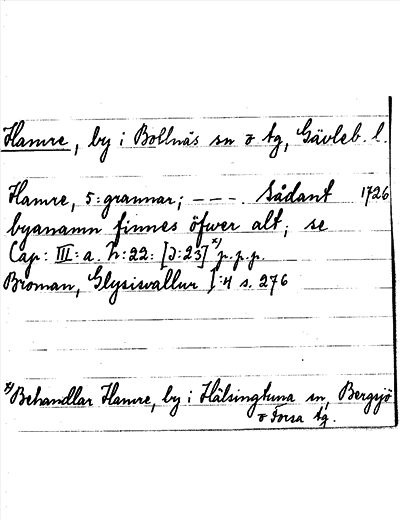 Hamre, by i Bollnäs sn o tg, Gävleb. l.
Hamre, 5: grannar; --- . Sådant 1726
byanamn finnes öfwer alt; se
Cap: III: a. h: 22: [Ɔ: 23] x) p.p.p.
Broman, Glysisvallur I: 4 s. 276
x) Behandlar Hamre, by i Hälsingtuna sn, Bergsjö
o Forsa tg.